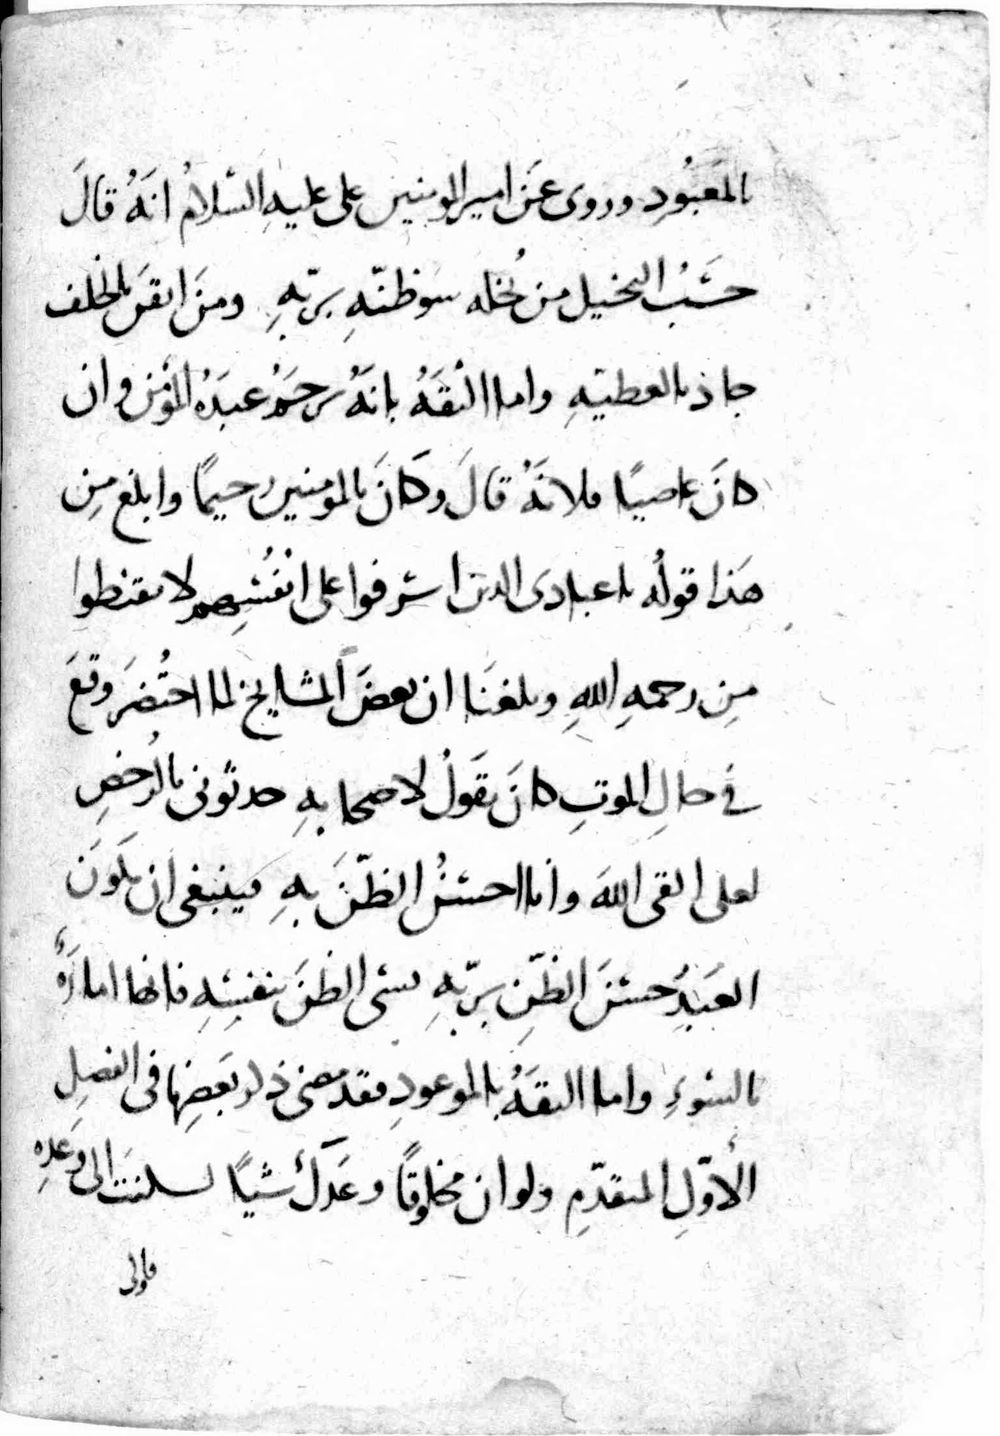 بالمَعبُودِ وروى عَن امير المومنين على عليهِ السَّلامُ انَهُ قالَ
حَسْبُ البخيل من بُخله سَوظنّهِ بربّهِ ومنَ ايقنَ بالخلف
جاد بالعطيّهِ واما الثقَهُ بانهُ يرحَمُ عبدَهُ المؤمن وان
كانَ عاصيًا فلانَهُ قالَ وكانَ بالمومنين رحيمًا وابلغ مِن
هَذا قولُه ياعبادىَ الدين اسْرفوا على انفُسِهم لا تقنطوا
مِن رحمهِ اللهِ وبلغنَا ان بعضَ المشايخ لما احتُضرَ وقعَ
فى حالِ الموتِ كانَ يقَولُ لاصحابهِ حدثونى بالرُخصِ
لعلى القى اللهَ وأنا احسنُ الظّنَ بهِ فينبغى ان يكونَ
العَبدُ حسنَ الظّنِ بربّهِ سىَ الظنَ بنفسِهِ فانها امارَهٌ
بالسّوءِ واما الثقَهُ بالموعودِ فقد مضى ذكر بعَضِها فى الفصلِ
الأوّلِ المتقدّمِ ولو ان مخلوقًا وعَدكَ شيًا لسكنتَ الى وَعَدِه
فاولى